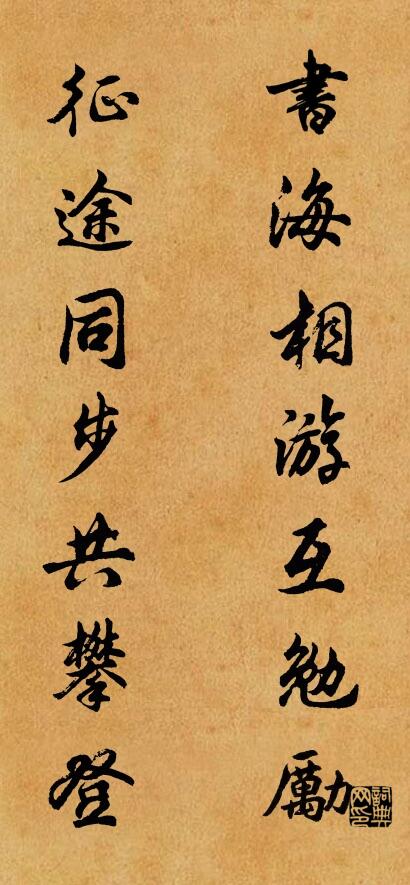 書海相游互勉勵
征途同步共攀登
詞典网印